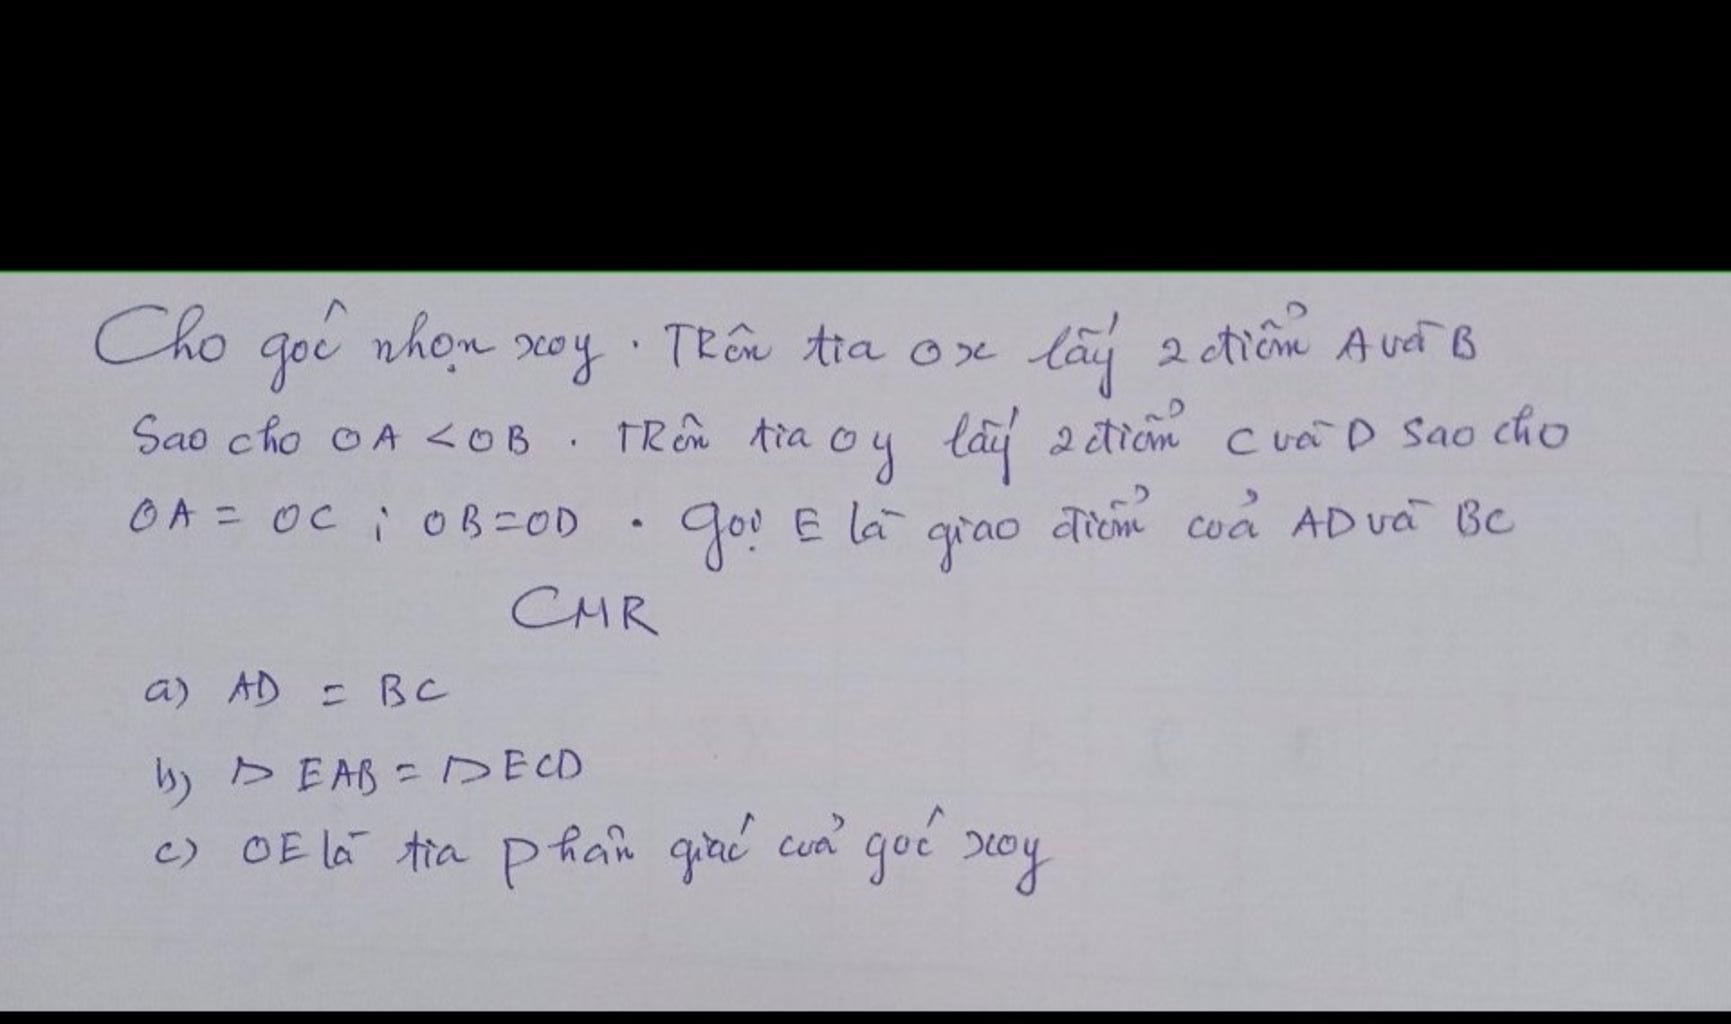 Cho góc nhọn xoy. Trên tia ox lấy 2 điểm A và B
Sao cho OA < OB. Trên tia oy lấy 2 điểm C và D sao cho
OA = OC ; OB = OD. gọi E là giao điểm của AD và BC
CMR
a) AD = BC
b) Δ EAB = Δ ECD
c) OE là tia phân giác của góc xoy